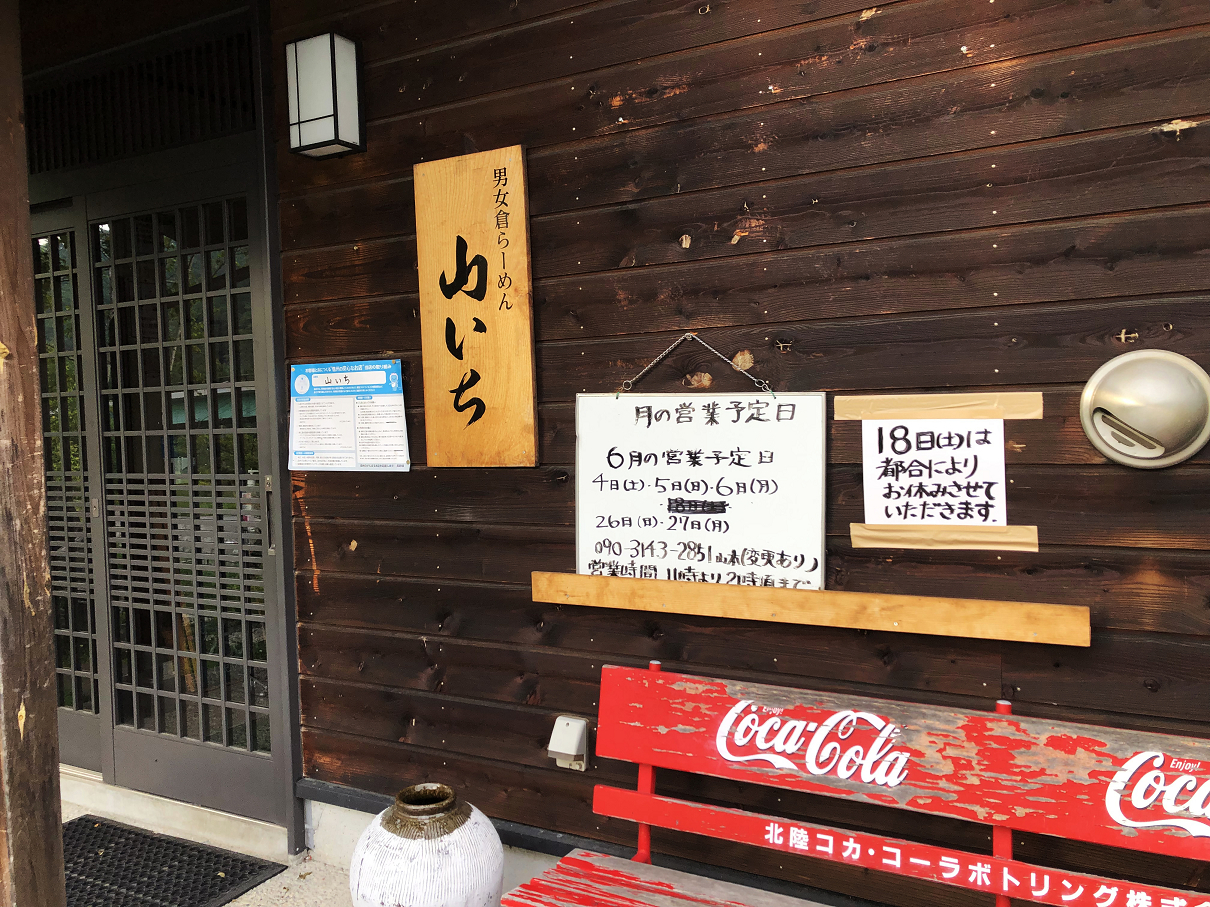 男女倉らーめん
山いち
山いち
月の営業予定日
6月の営業予定日
4日(土)・5日(日)・6日(月)
26日(日)・27日(月)
090-3143-2851 山本(変更あり)
営業時間 11時より 21時頃まで
18日(土)は
都合により
お休みさせて
いただきます。
Enjoy!
Coca-Cola
Enjoy!
Coca
北陸コカ・コーラボトリング株式